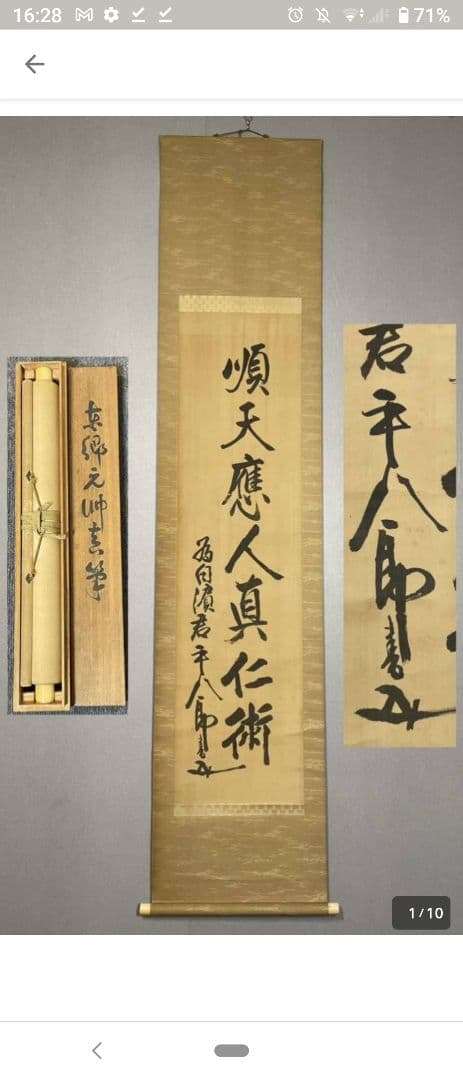 16:28
71%
東郷元帥真筆
順天應人真仁術
為白濱君 平八郎書
君平八郎書
1/10